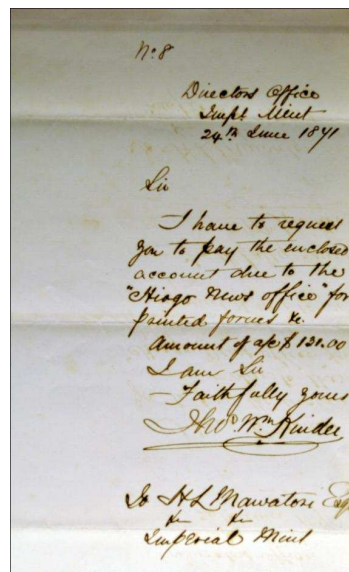 No. 8
Directors Office
Impl. Mint
24th June 1871
Sir
I have to request
you to pay the enclosed
account due to the
"Hiogo News office" for
printed forms &c.
Amount of a/c $ 131.00
I am Sir
Faithfully yours
Thos Wm Kinder
To H L Mawatori Esq
Imperial Mint